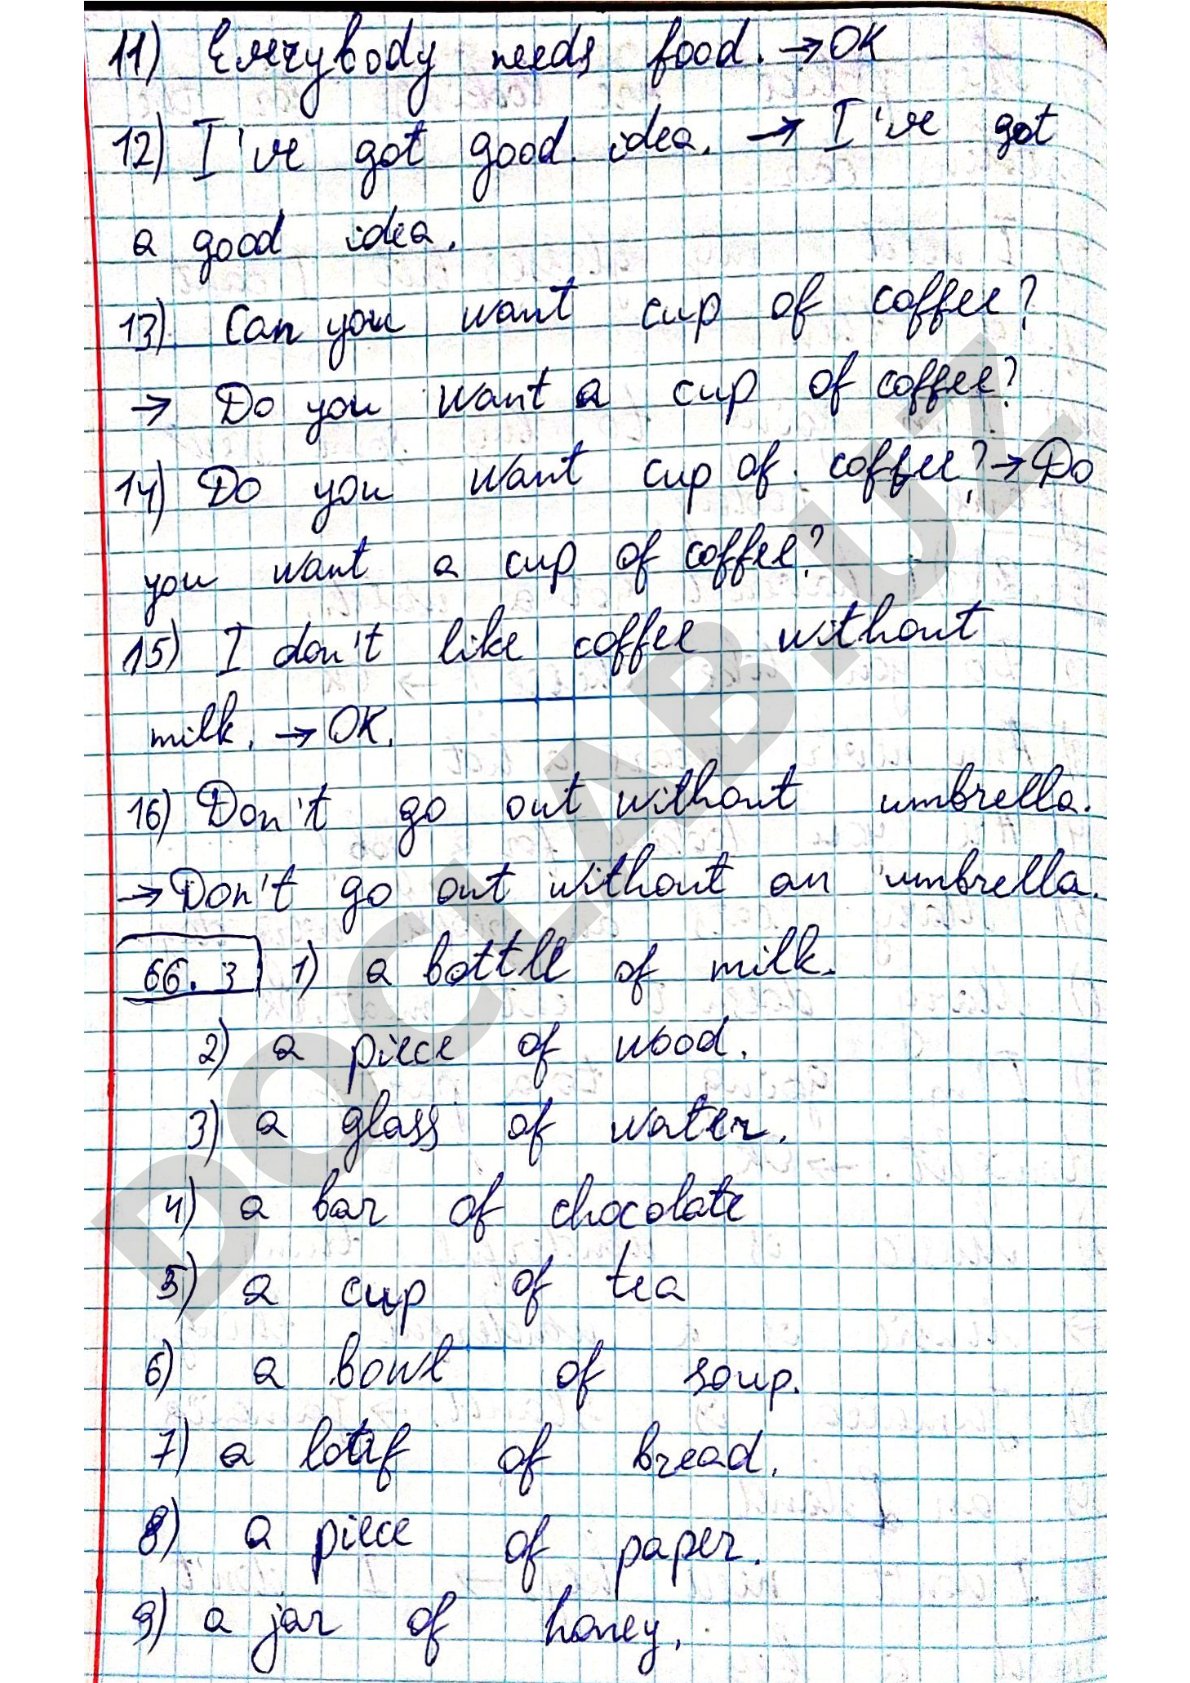 11) Everybody needs food. → OK
12) I've got good idea. → I've got
a good idea.
13) Can you want cup of coffee?
→ Do you want a cup of coffee?
14) Do you want cup of coffee? → Do
you want a cup of coffee?
15) I don't like coffee without
milk. → OK.
16) Don't go out without umbrella.
→ Don't go out without an umbrella.
66.3 1) a bottle of milk.
2) a piece of wood.
3) a glass of water.
4) a bar of chocolate
5) a cup of tea
6) a bowl of soup.
7) a loaf of bread.
8) a piece of paper.
9) a jar of honey.
DOCLAB.UZ